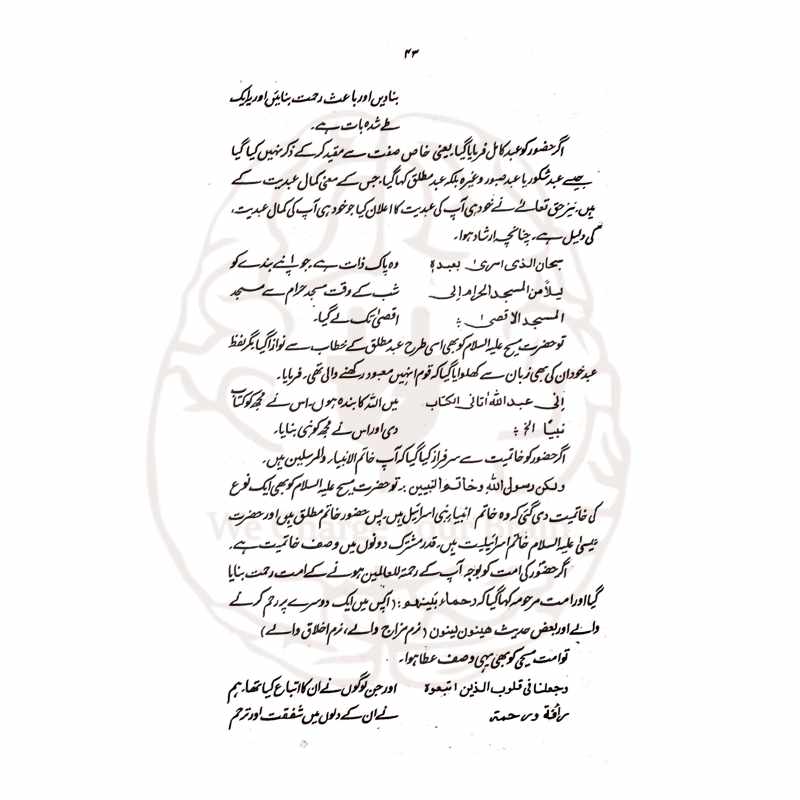 ۴۳
بنادیں اور باعث رحمت بنائیں اور یہ ایک
طے شدہ بات ہے۔
اگر حضور کو عبد کامل فرمایا گیا یعنی خاص صفت سے مقید کر کے ذکر نہیں کیا گیا
جیسے عبد شکور یا عبد صبور وغیرہ بلکہ عبد مطلق کہا گیا، جس کے معنی کمال عبدیت کے
ہیں۔ نیز حق تعالےٰ نے خود ہی آپ کی عبدیت کا اعلان کیا جو خود ہی آپ کی کمال عبدیت،
کی دلیل ہے۔ چنانچہ ارشاد ہوا۔
سبحان الذی اسریٰ بعبدہ وہ پاک ذات ہے جو اپنے بندے کو
لیلاً من المسجد الحرام الی شب کے وقت مسجد حرام سے مسجد
المسجد الاقصیٰ ؛ اقصیٰ تک لے گیا۔
تو حضرت مسیح علیہ السلام کو بھی اسی طرح عبد مطلق کے خطاب سے نوازا گیا بلکہ لفظ
عبد خود ان کی بھی زبان سے کھلوایا گیا کہ قوم انہیں معبود رکھنے والی تھی۔ فرمایا۔
اِنی عبداللہ اٰتانی الکتاب میں اللہ کا بندہ ہوں۔ اس نے مجھ کو کتاب
نبیًا الخ ؛ دی اور اس نے مجھ کو نبی بنایا۔
اگر حضور کو خاتمیت سے سرفراز کیا گیا کہ آپ خاتم الانبیاء والمرسلین ہیں۔
ولٰکن رسول اللہ وخاتم النبیین۔ تو حضرت مسیح علیہ السلام کو بھی ایک نوع
کی خاتمیت دی گئی کہ وہ خاتم انبیاء بنی اسرائیل ہیں۔ پس حضور خاتم مطلق ہیں اور حضرت
عیسیٰ علیہ السلام خاتم اسرائیلیت ہیں، قدر مشترک دونوں میں وصف خاتمیت ہے۔
اگر حضورؐ کی امت کو بوجہ آپ کے رحمۃ للعالمین ہونے کے امت رحمت بنایا
گیا اور امت مرحومہ کہا گیا کہ رحماء بینھم : (آپس میں ایک دوسرے پر رحم کرنے
والے اور بعض حدیث ھینون لینون (نرم مزاج والے، نرم اخلاق والے)
تو امت مسیحی کو بھی یہی وصف عطا ہوا۔
وجعلنا فی قلوب الذین اتبعوہ اور جن لوگوں نے ان کا اتباع کیا تھا، ہم
رأفۃ ورحمۃ نے ان کے دلوں میں شفقت اور ترحم